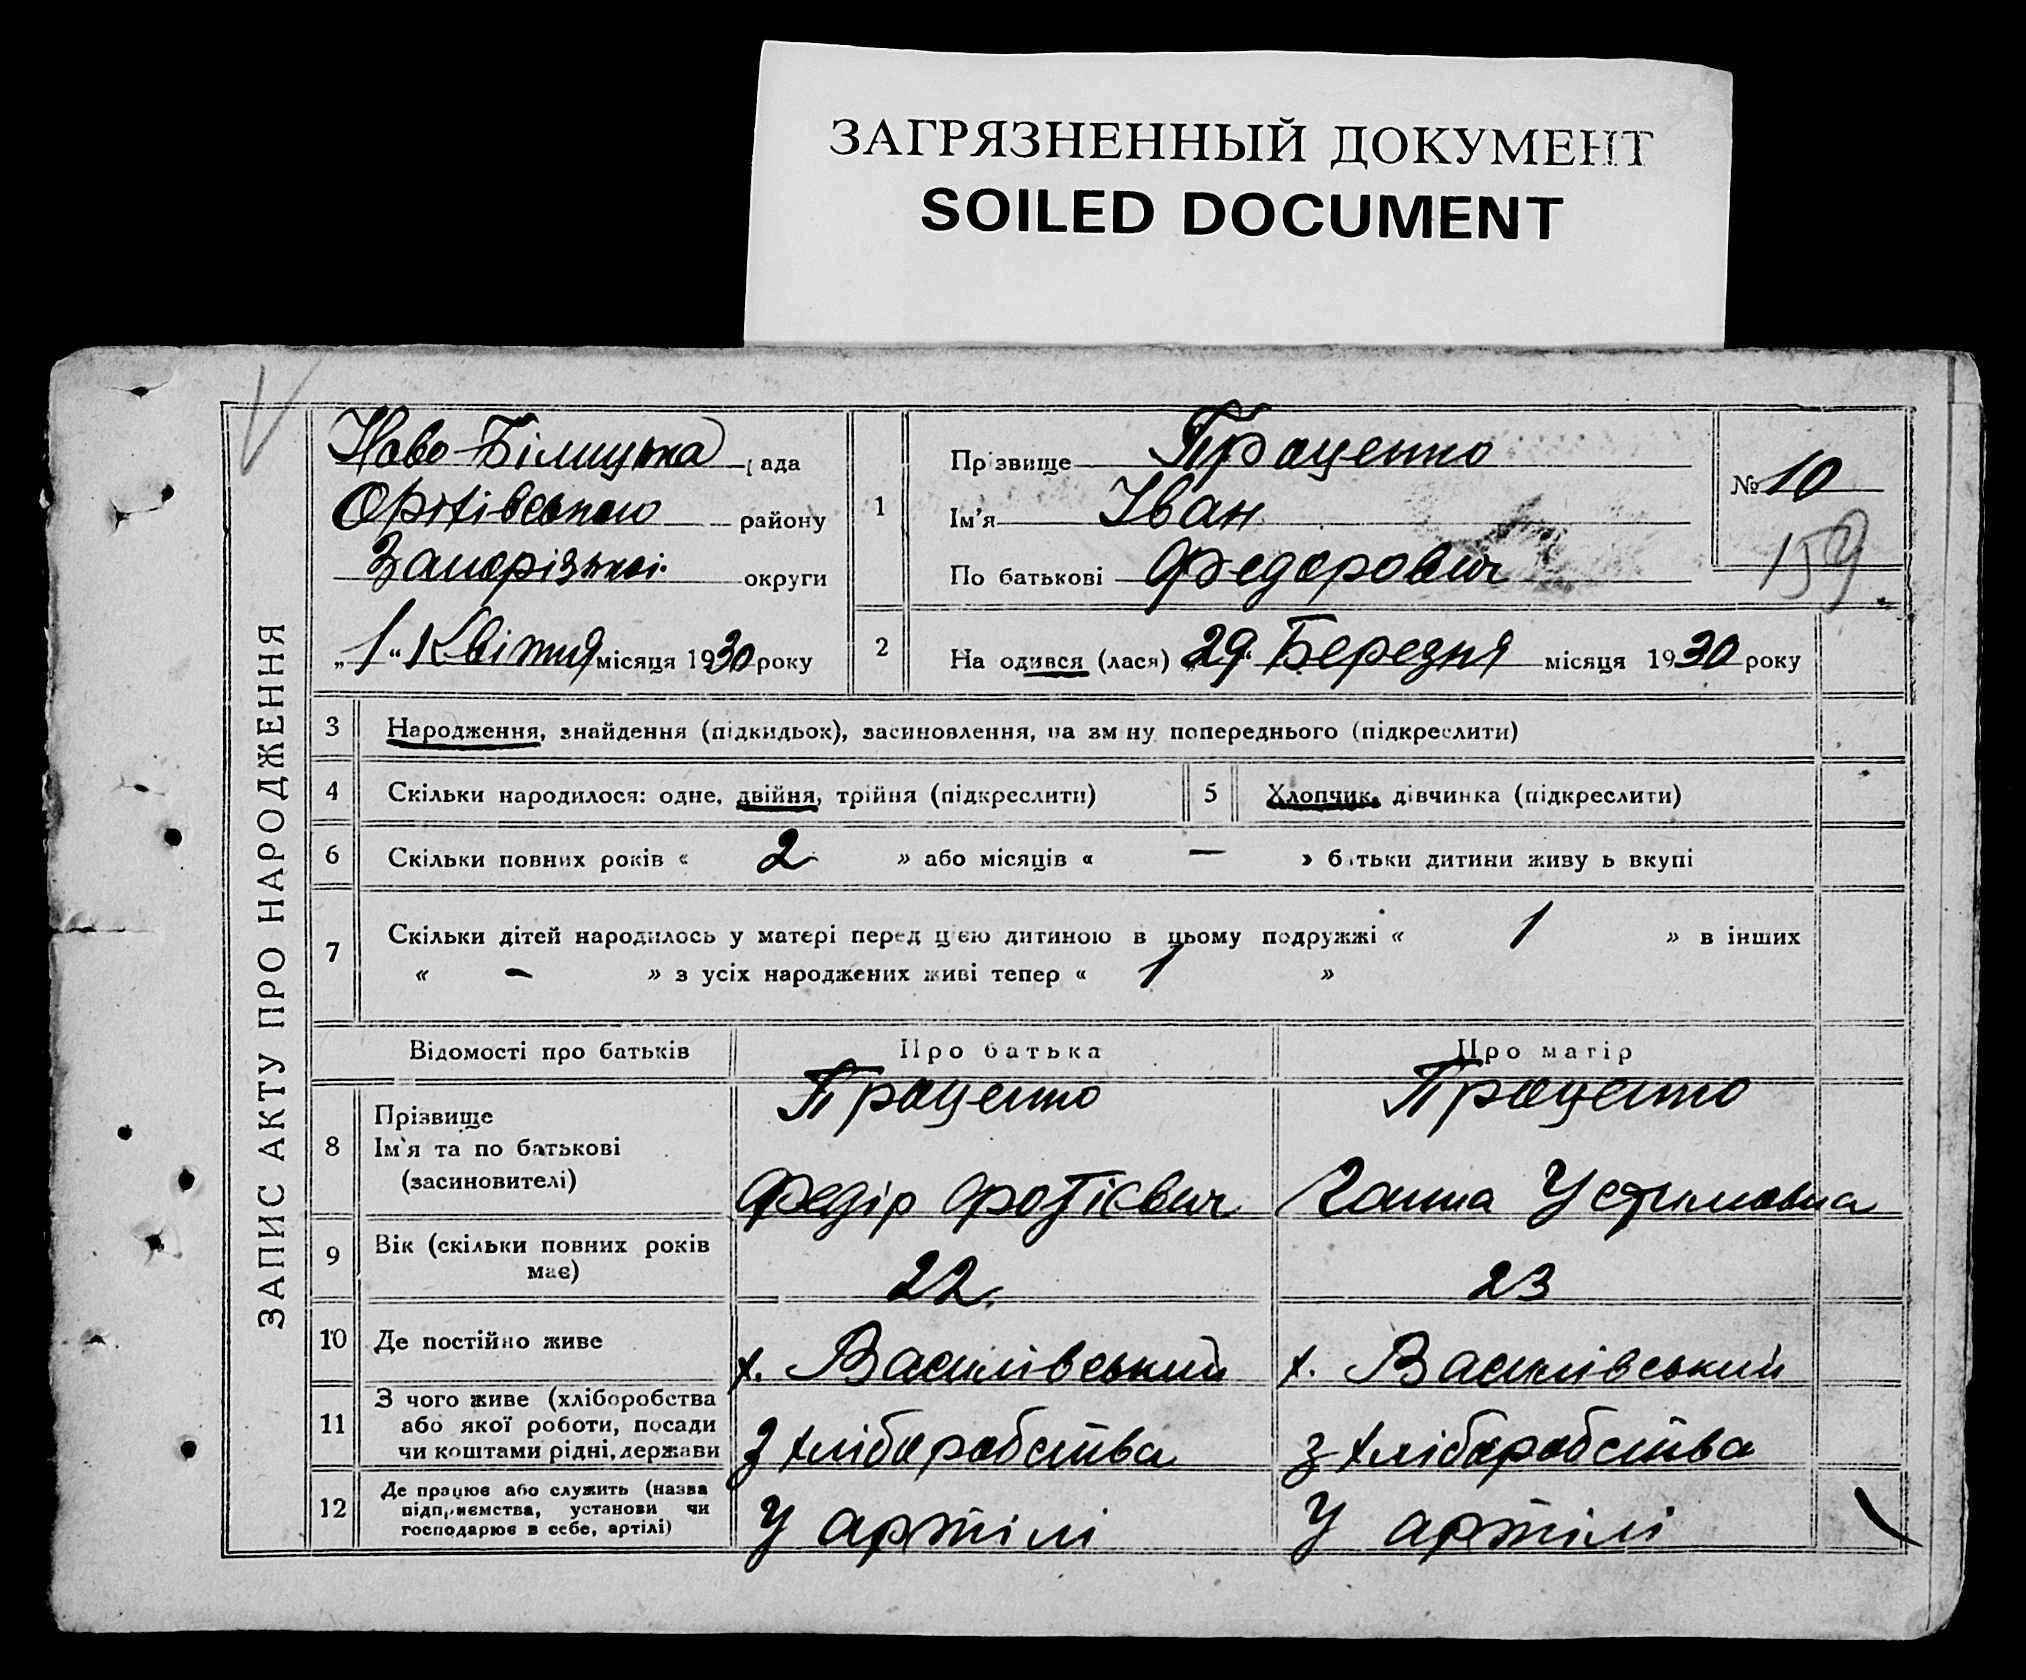 ЗАГРЯЗНЕННЫЙ ДОКУМЕНТ
SOILED DOCUMENT
ЗАПИС АКТУ ПРО НАРОДЖЕННЯ
Ново-Білицька рада
Оріхівського району
Запорізької округи
„1“ Квітня місяця 1930 року
1
Прізвище Проценко
Ім'я Іван
По батькові Федорович
№ 10
159
2
На одився (лася) „29 Березня місяця 1930 року
3 Народження, знайдення (підкидьок), засиновлення, на зміну попереднього (підкреслити)
4 Скільки народилося: одне, двійня, трійня (підкреслити) 5 Хлопчик, дівчинка (підкреслити)
6 Скільки повних років « 2 » або місяців « — » батьки дитини живуть вкупі
7 Скільки дітей народилось у матері перед цією дитиною в цьому подружжі « 1 » в інших
« — » з усіх народжених живі тепер « 1 »
Відомості про батьків Про батька Про матір
8 Прізвище Проценко Проценко
Ім'я та по батькові
(засиновителі) Федір Фотієвич Ганна Устимовна
9 Вік (скільки повних років
має) 22 23
10 Де постійно живе х. Василівський х. Василівський
11 З чого живе (хліборобства
або якої роботи, посади
чи коштами рідні, держави З хліборобства з хліборобства
12 Де працює або служить (назва
підприємства, установи чи
господарює в себе, артілі) У артілі У артілі